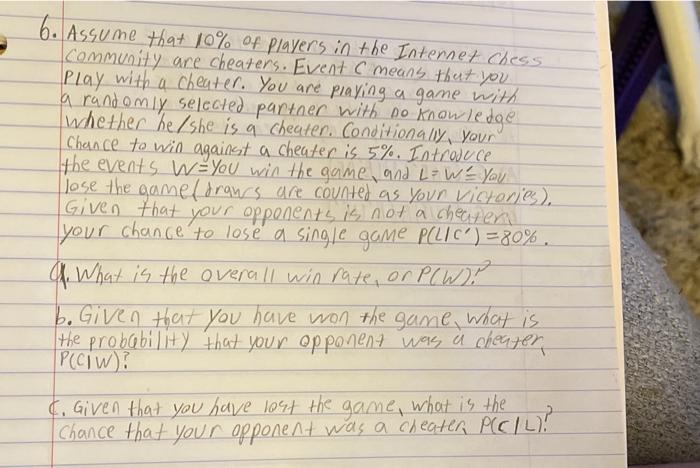 6. Assume that 10% of players in the Internet chess
community are cheaters. Event C means that you
Play with a cheater. You are playing a game with
a randomly selected partner with no knowledge
whether he/she is a cheater. Conditionally, your
chance to win against a cheater is 5%. Introduce
the events W=You win the game, and L=W'=You
lose the game (draws are counted as your victories).
Given that your opponents is not a cheater,
your chance to lose a single game P(L|C')=80%.
a. What is the overall win rate, or P(W)?
b. Given that you have won the game, what is
the probability that your opponent was a cheater,
P(C|W)?
C. Given that you have lost the game, what is the
chance that your opponent was a cheater, P(C|L)?